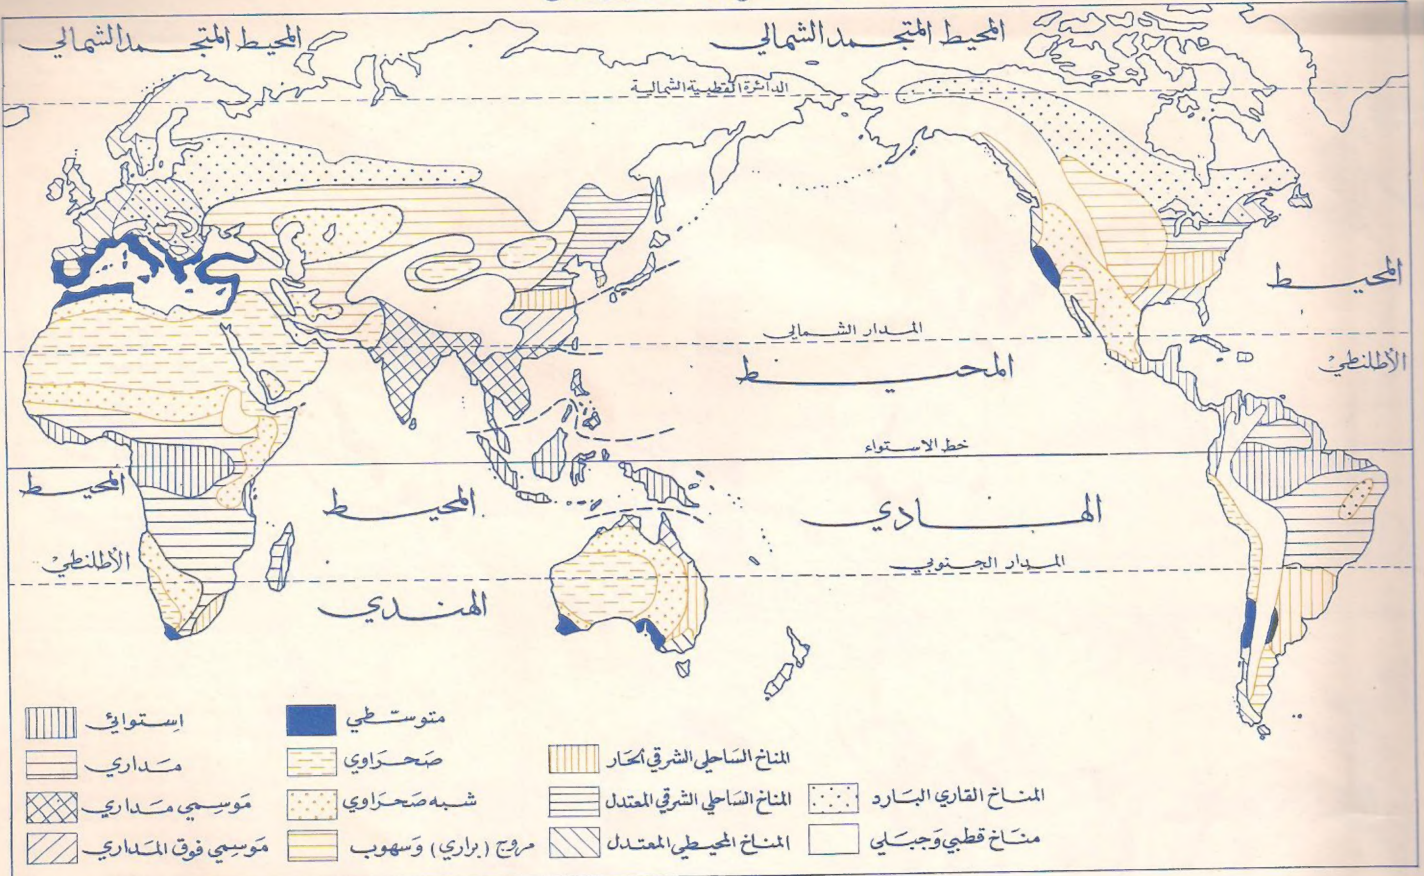 المحيط المتجمد الشمالي
المحيط المتجمد الشمالي
الدائرة القطبية الشمالية
المحيط
الأطلنطي
المدار الشمالي
المحيط
خط الاستواء
الهادي
المدار الجنوبي
المحيط
الهندي
المحيط
الأطلنطي
إستوائي
مداري
موسمي مداري
موسمي فوق المداري
متوسطي
صحراوي
شبه صحراوي
مروج (براري) وسهوب
المناخ الساحلي الشرقي الحار
المناخ الساحلي الشرقي المعتدل
المناخ المحيطي المعتدل
المناخ القاري البارد
مناخ قطبي وجبلي